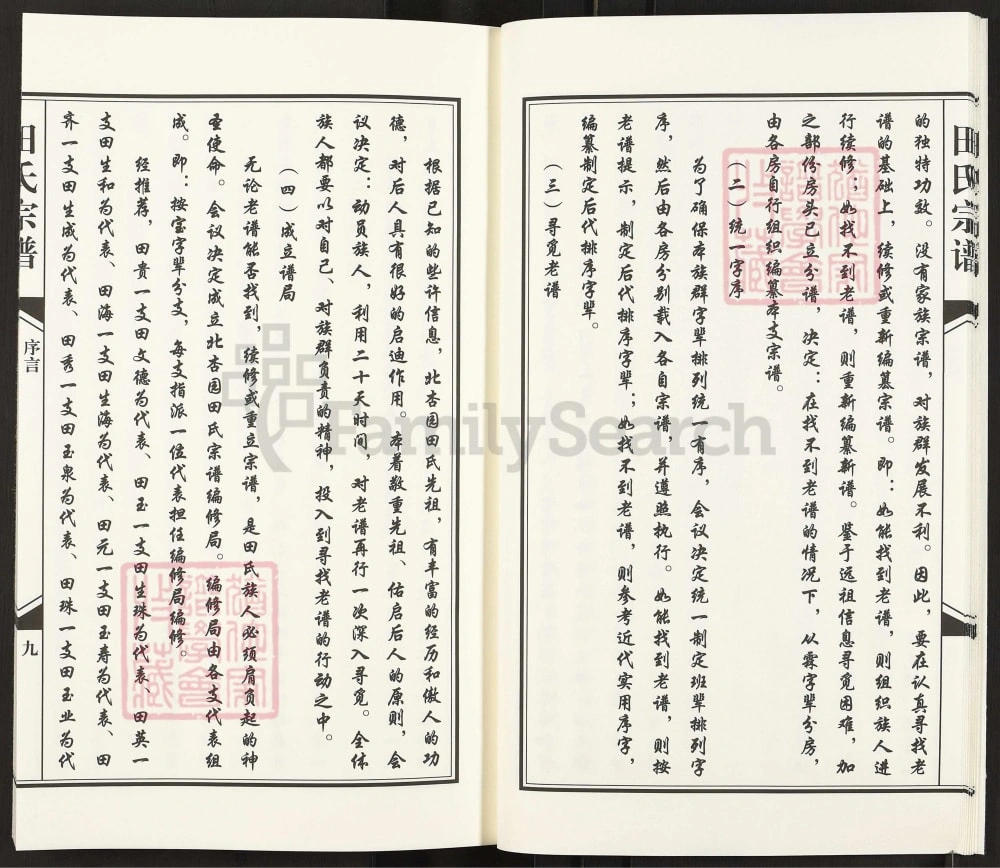 田氏宗谱
的独特功效。没有家族宗谱，对族群发展不利。因此，要在认真寻找老
谱的基础上，续修或重新编纂宗谱。即：如能找到老谱，则组织族人进
行续修；如找不到老谱，则重新编纂新谱。鉴于远祖信息寻觅困难，加
之部份房头已立分谱，决定：在找不到老谱的情况下，从霖字辈分房，
由各房自行组织编纂本支宗谱。
（二）统一字序
为了确保本族群字辈排列统一有序，会议决定统一制定班辈排列字
序，然后由各房分别载入各自宗谱，并遵照执行。如能找到老谱，则按
老谱提示，制定后代排序字辈；如找不到老谱，则参考近代实用序字，
编纂制定后代排序字辈。
（三）寻觅老谱
根据已知的些许信息，北杏园田氏先祖，有丰富的经历和傲人的功
德，对后人具有很好的启迪作用。本着敬重先祖、佑启后人的原则，会
议决定：动员族人，利用二十天时间，对老谱再行一次深入寻觅。全体
族人都要以对自己、对族群负责的精神，投入到寻找老谱的行动之中。
（四）成立谱局
无论老谱能否找到，续修或重立宗谱，是田氏族人必须肩负起的神
圣使命。会议决定成立北杏园田氏宗谱编修局。编修局由各支代表组
成。即：按宝字辈分支，每支指派一位代表担任编修局编修。
经推荐，田贵一支田文德为代表、田玉一支田生珠为代表、田英一
支田生和为代表、田海一支田生海为代表、田元一支田玉寿为代表、田
齐一支田生成为代表、田秀一支田玉泉为代表、田珠一支田玉业为代
田氏宗谱
序言
九
FamilySearch